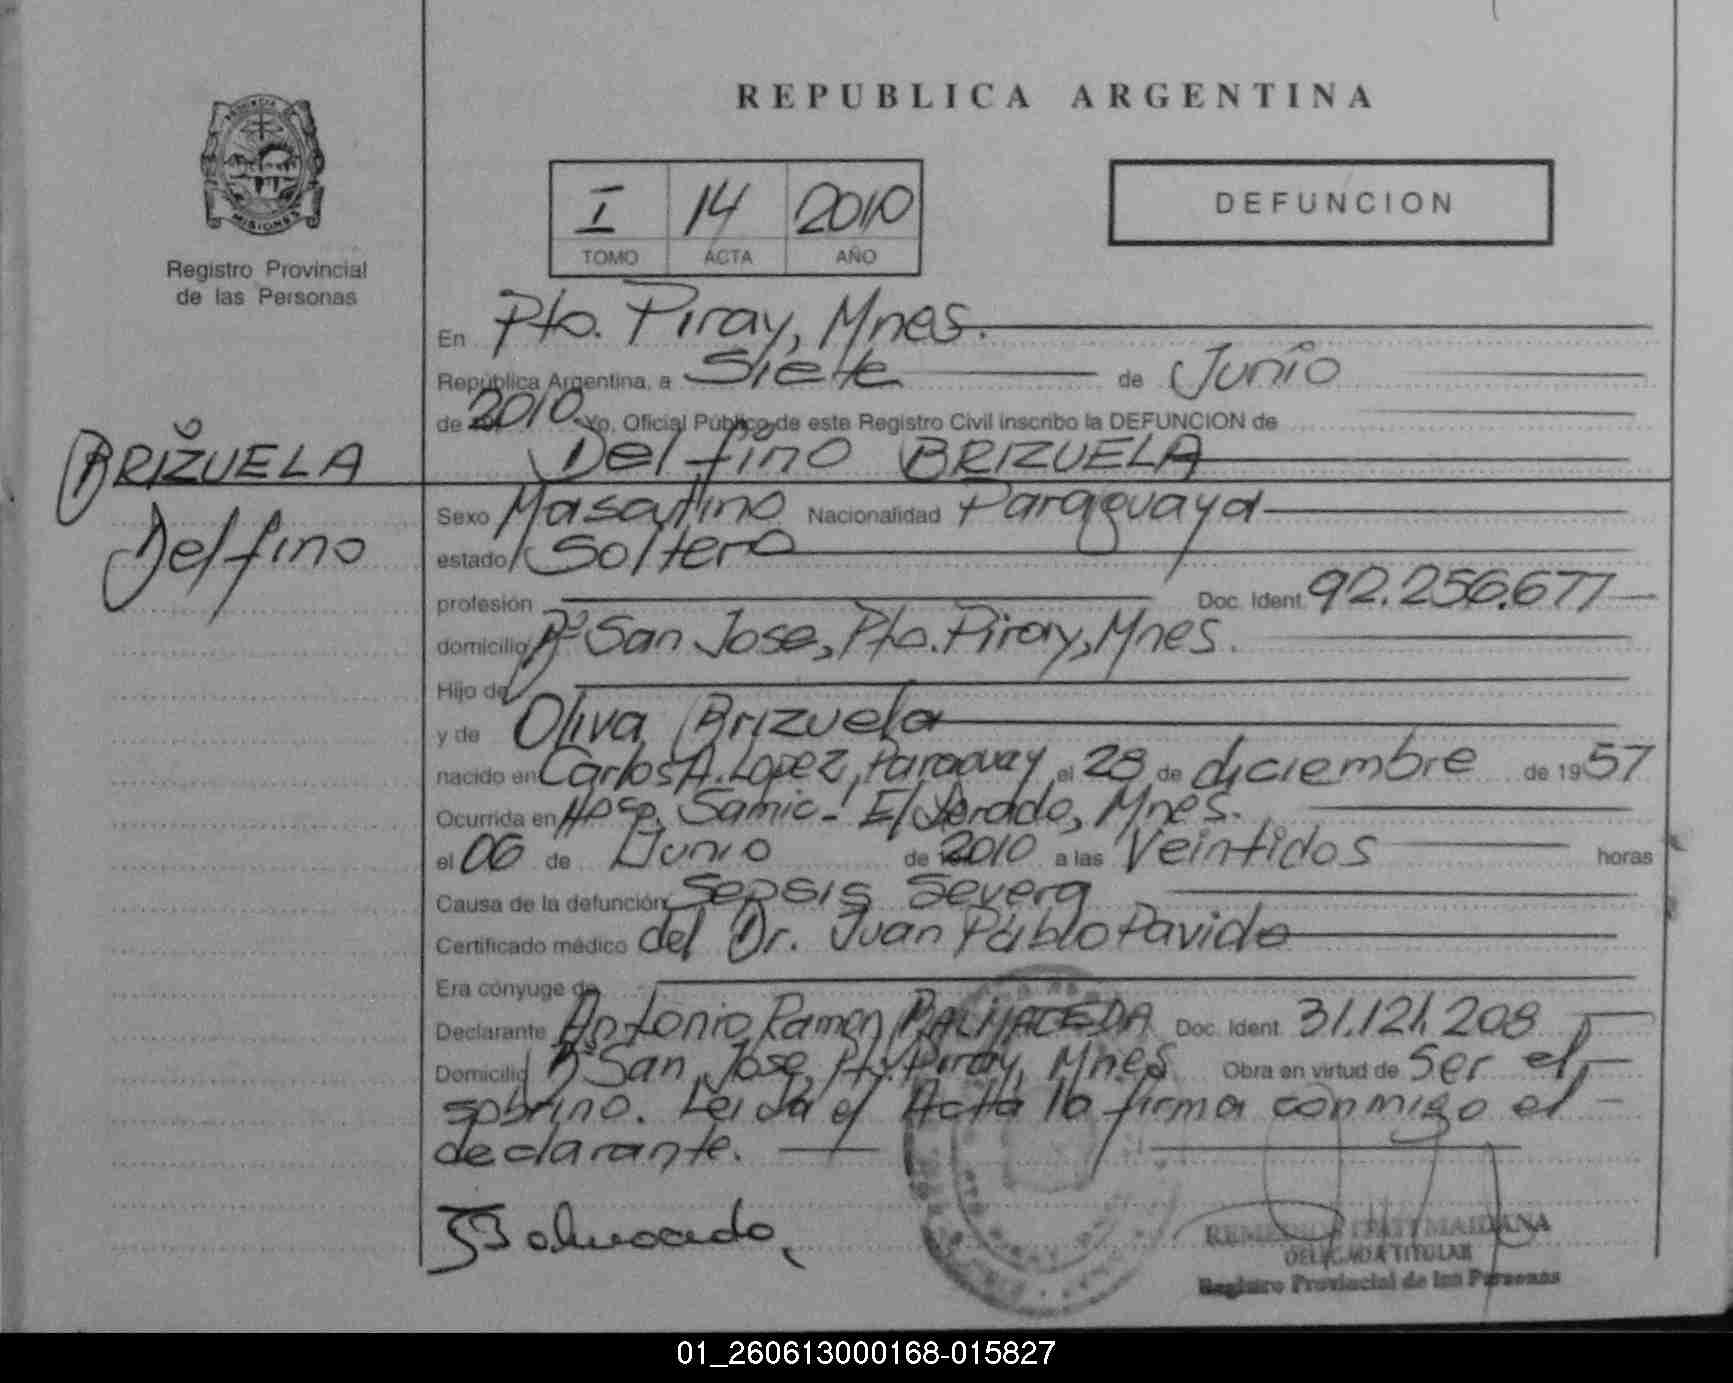 REPUBLICA ARGENTINA
PROVINCIA
MISIONES
Registro Provincial
de las Personas
I 14 2010
TOMO ACTA AÑO
DEFUNCION
En Pto. Piray, Mnes.
República Argentina, a Siete de Junio
de 2010 Yo, Oficial Público de este Registro Civil inscribo la DEFUNCION de
Delfino BRIZUELA
BRIZUELA
Delfino
Sexo Masculino Nacionalidad Paraguaya
estado Soltero
profesión Doc. Ident. 92.256.677
domicilio Bº San Jose, Pto. Piray, Mnes.
Hijo de
y de Oliva Brizuela
nacido en Carlos A. Lopez, Paraguay el 28 de diciembre de 1957
Ocurrida en Hosp. Samic - El Dorado, Mnes.
el 06 de Junio de 2010 a las Veintidos horas
Causa de la defunción Sepsis Severa
Certificado médico del Dr. Juan Pablo Pavido
Era cónyuge de
Declarante Antonio Ramon BALMACEDA Doc. Ident. 31.121.208
Domicilio Bº San Jose, Pto. Piray, Mnes Obra en virtud de Ser el
sobrino. Leida el Acta la firma conmigo el
declarante.
MAIDANA
DELEGADA TITULAR
Registro Provincial de las Personas
01_260613000168-015827